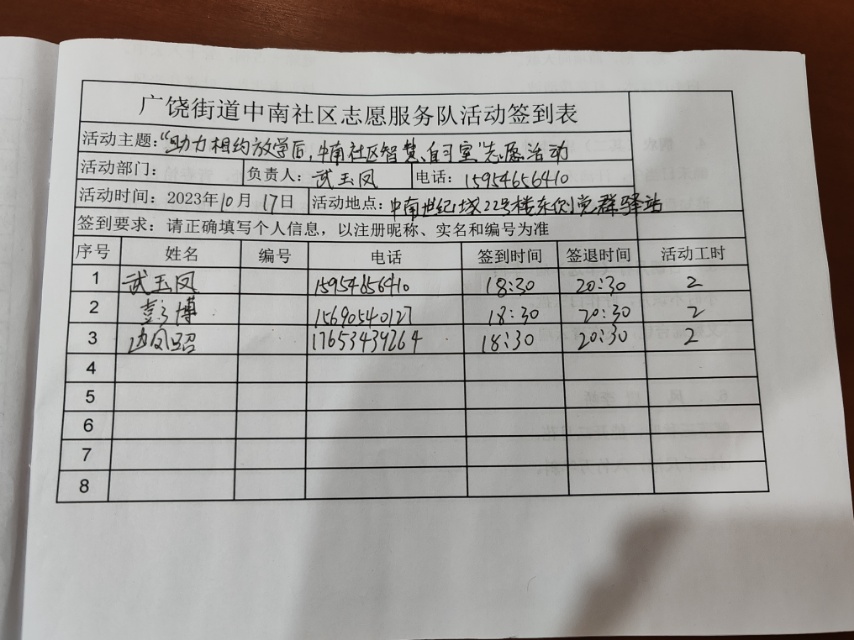 广饶街道中南社区志愿服务队活动签到表
活动主题：“助力相约放学后，中南社区智慧自习室”志愿活动
活动部门： 负责人：武玉凤 电话：15954656410
活动时间：2023年10月17日 活动地点：中南世纪城22号楼东侧党群驿站
签到要求：请正确填写个人信息，以注册昵称、实名和编号为准
序号 姓名 编号 电话 签到时间 签退时间 活动工时
1 武玉凤 15954656410 18:30 20:30 2
2 彭博 15690540127 18:30 20:30 2
3 边凤昭 17653439264 18:30 20:30 2
4
5
6
7
8